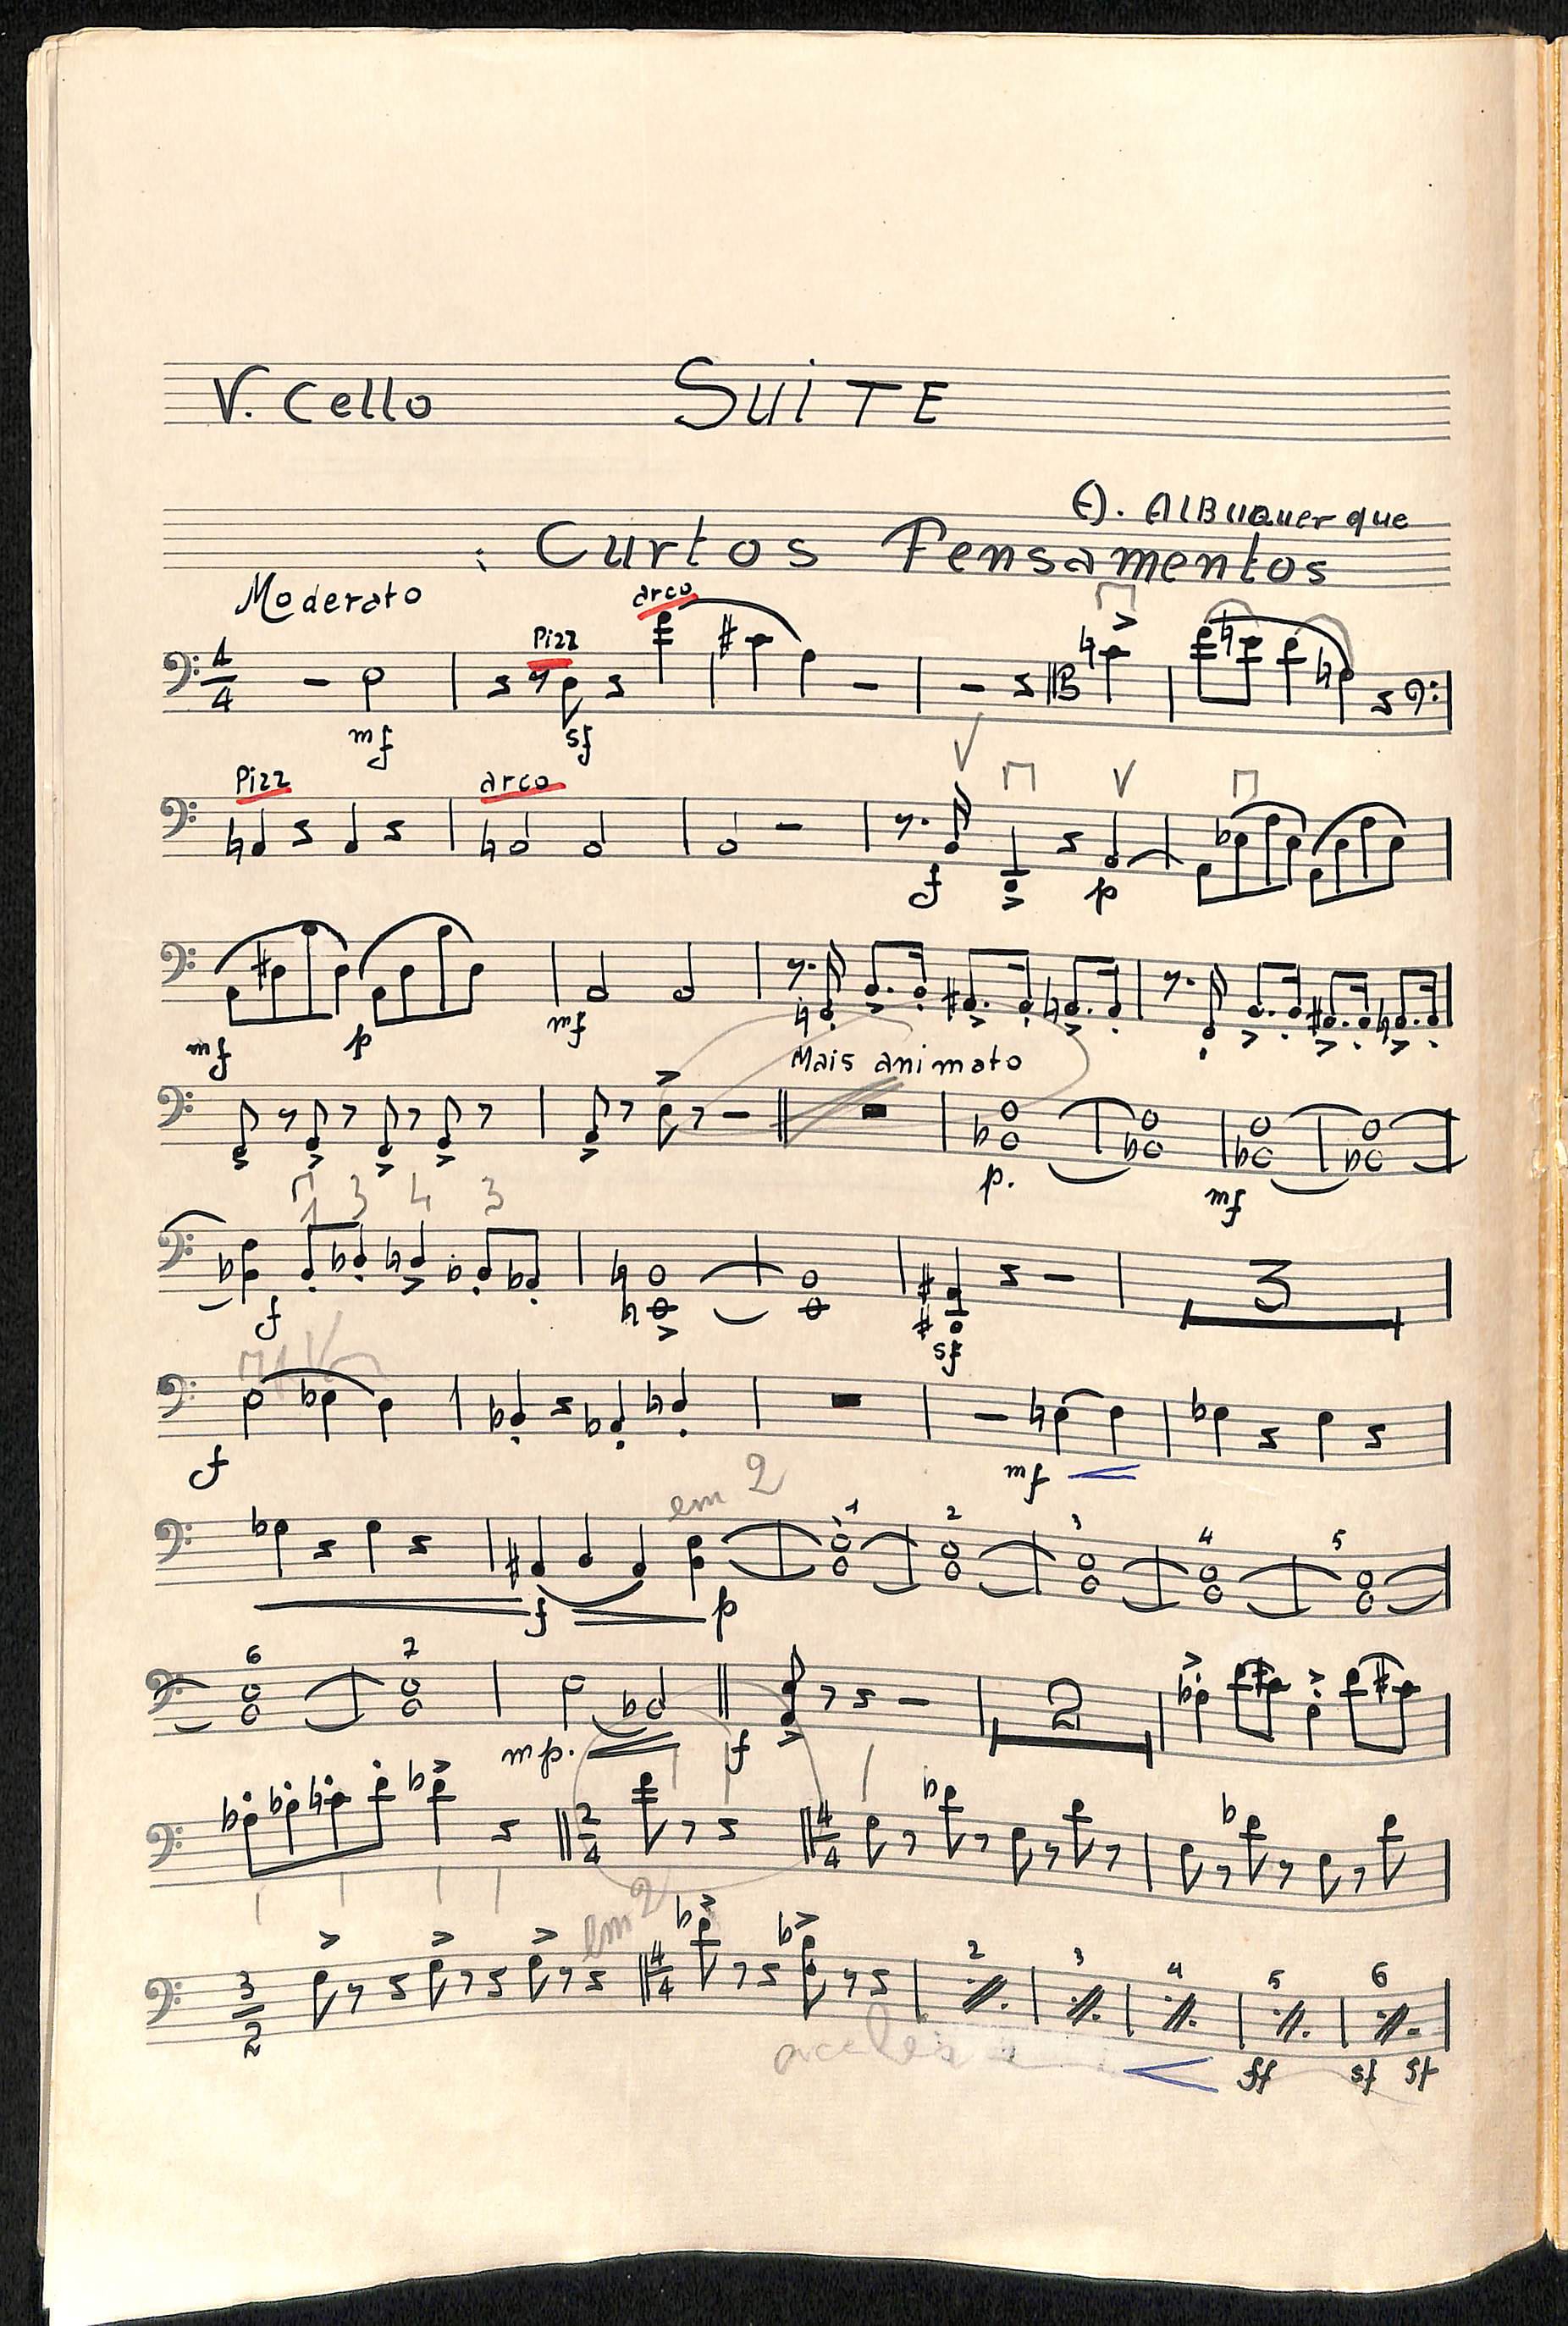 V. Cello SUiTE
A. AlBuquerque
: Curtos Pensamentos
Moderato
Pizz arco
4/4
mf sf B
Pizz arco
f p
mf p mf
Mais animato
p. mf
1 3 4 3
f sf 3
f mf
em 2
1 2 3 4 5
f p
6 7
mp. f 2
2/4 4/4
em 2
3/2 4/4 2 3 4 5 6
ff sf sf